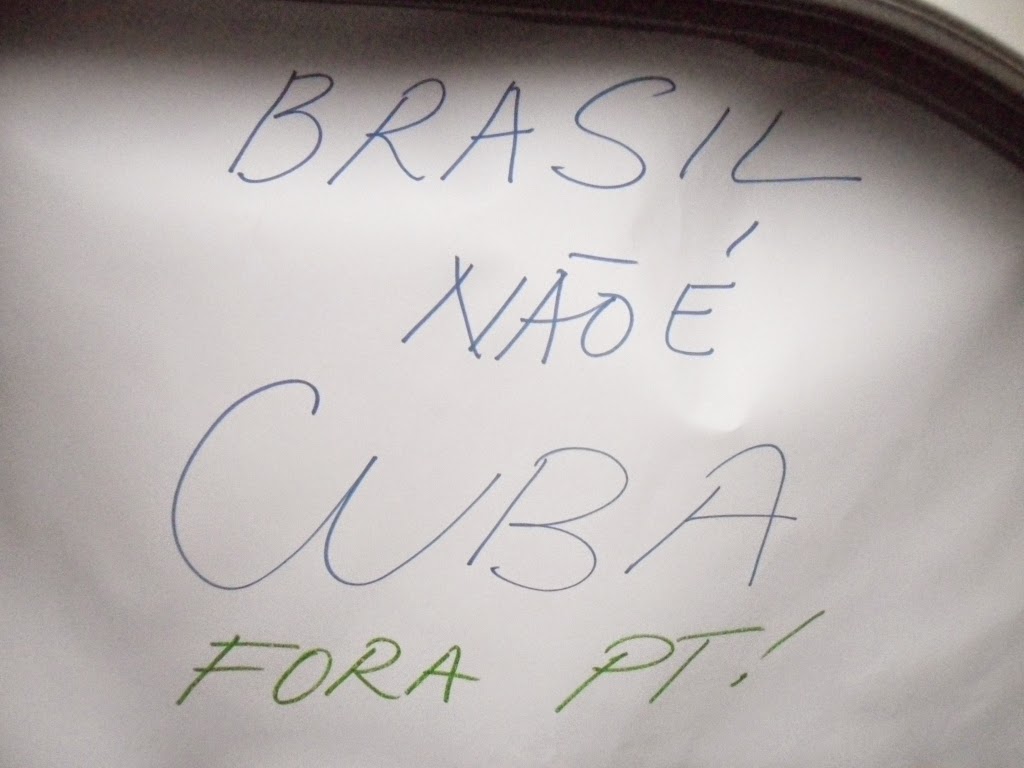 BRASIL
NÃO É
CUBA
FORA PT!